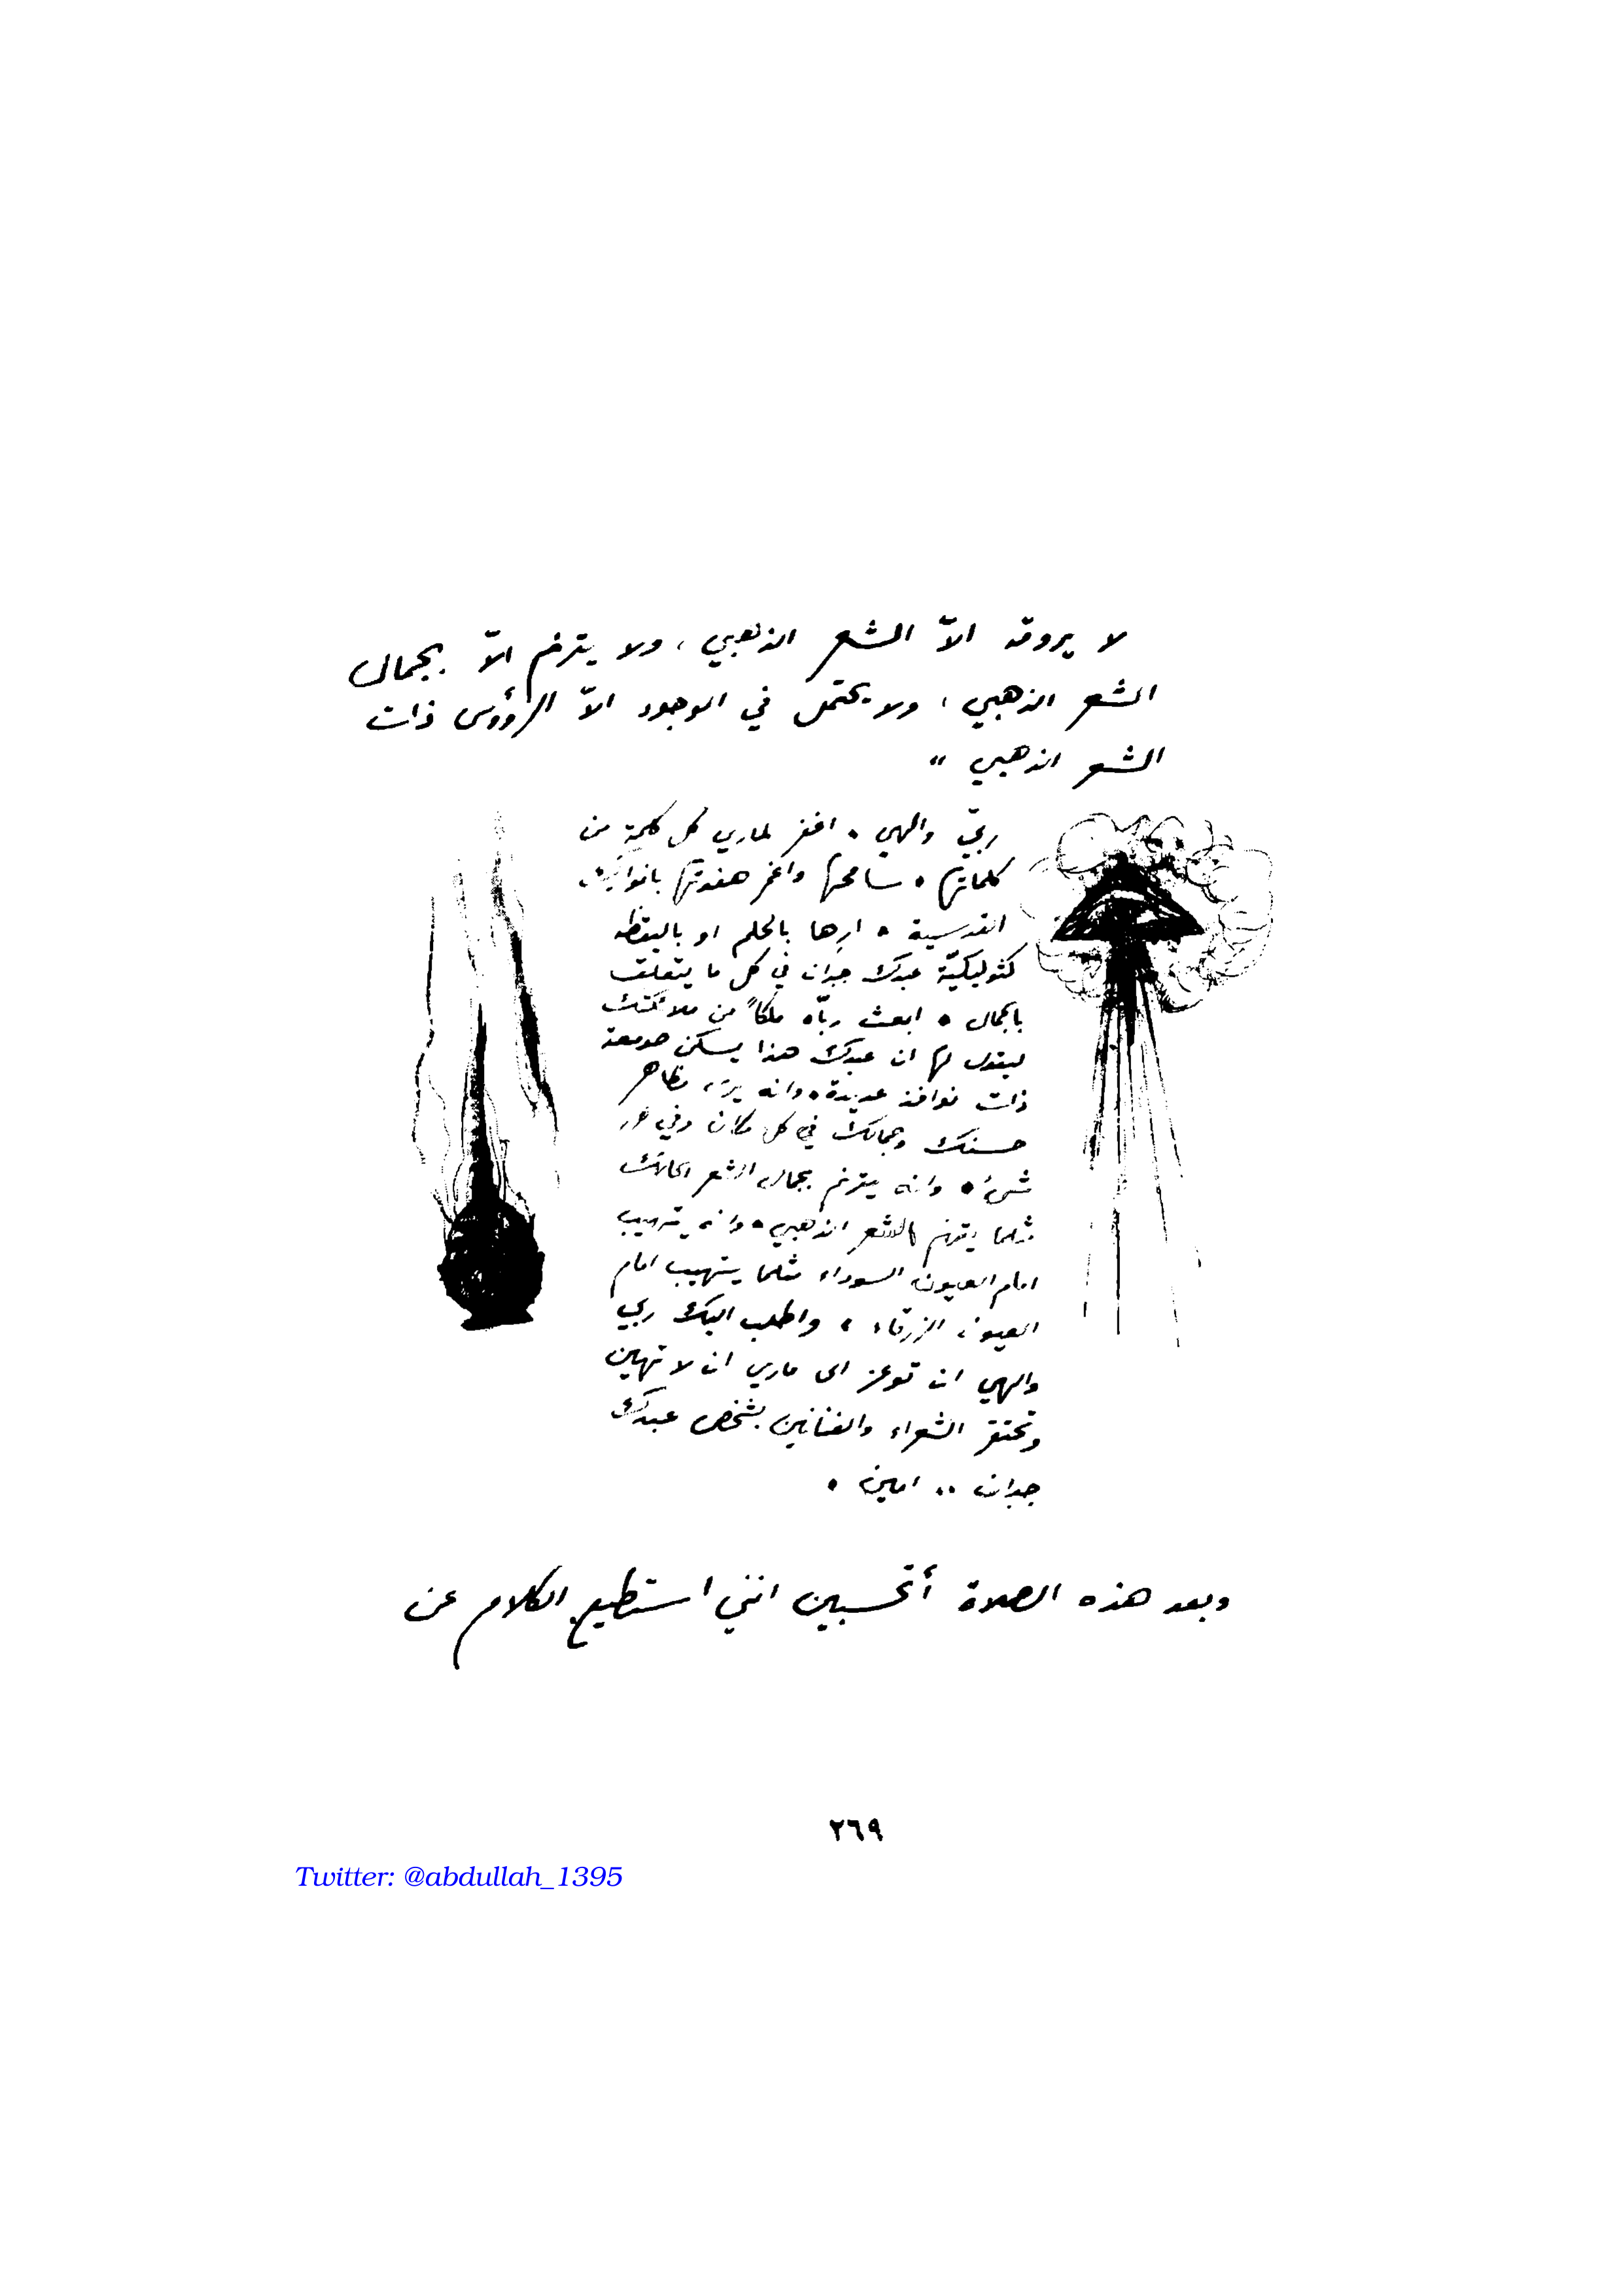 لا يروقه الاّ الشعر الذهبي ، ولا يترنم الاّ بجمال
الشعر الذهبي ، ولا يحتمل في الوجود الاّ الرؤوس ذات
الشعر الذهبي "
ربّي والهي • اغفر لماري كل كلمةٍ من
كلماتها • سامحها واغمر هفوتها بانوارك
القدسية • ارِها بالحلم او باليقظه
كثوليكيّة عبدك جبران في كل ما يتعلق
بالجمال • ابعث ربّاه ملكاً من ملائكتك
ليقول لها ان عبدك هذا يسكن صومعة
ذات نوافذ عديدة • وانه يرى مظاهر
حسنك وجمالك في كل مكان وفي كل
شيء • وانه يترنم بجمال الشعر الحالك
مثلما يترنم بالشعر الذهبي • وانه يتهيب
امام العيون السوداء مثلما يتهيب امام
العيون الزرقاء ، واطلب اليك ربي
والهي ان توعز الى ماري ان لا تهين
وتحتقر الشعراء والفنانين بشخص عبدك
جبران .. امين •
وبعد هذه الصلاة أتحسبين انني استطيع الكلام عن
٢٦٩
Twitter: @abdullah_1395